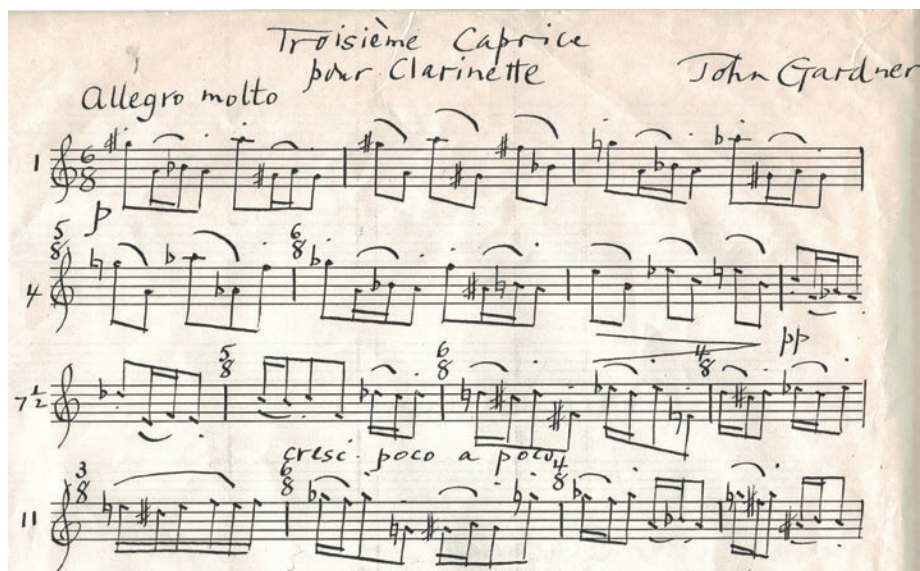 Troisième Caprice
pour Clarinette
John Gardner
Allegro molto
1
6
8
p
5
8
6
8
4
pp
5
8
6
8
4
8
7 1/2
cresc. poco a poco
3
8
6
8
4
8
11